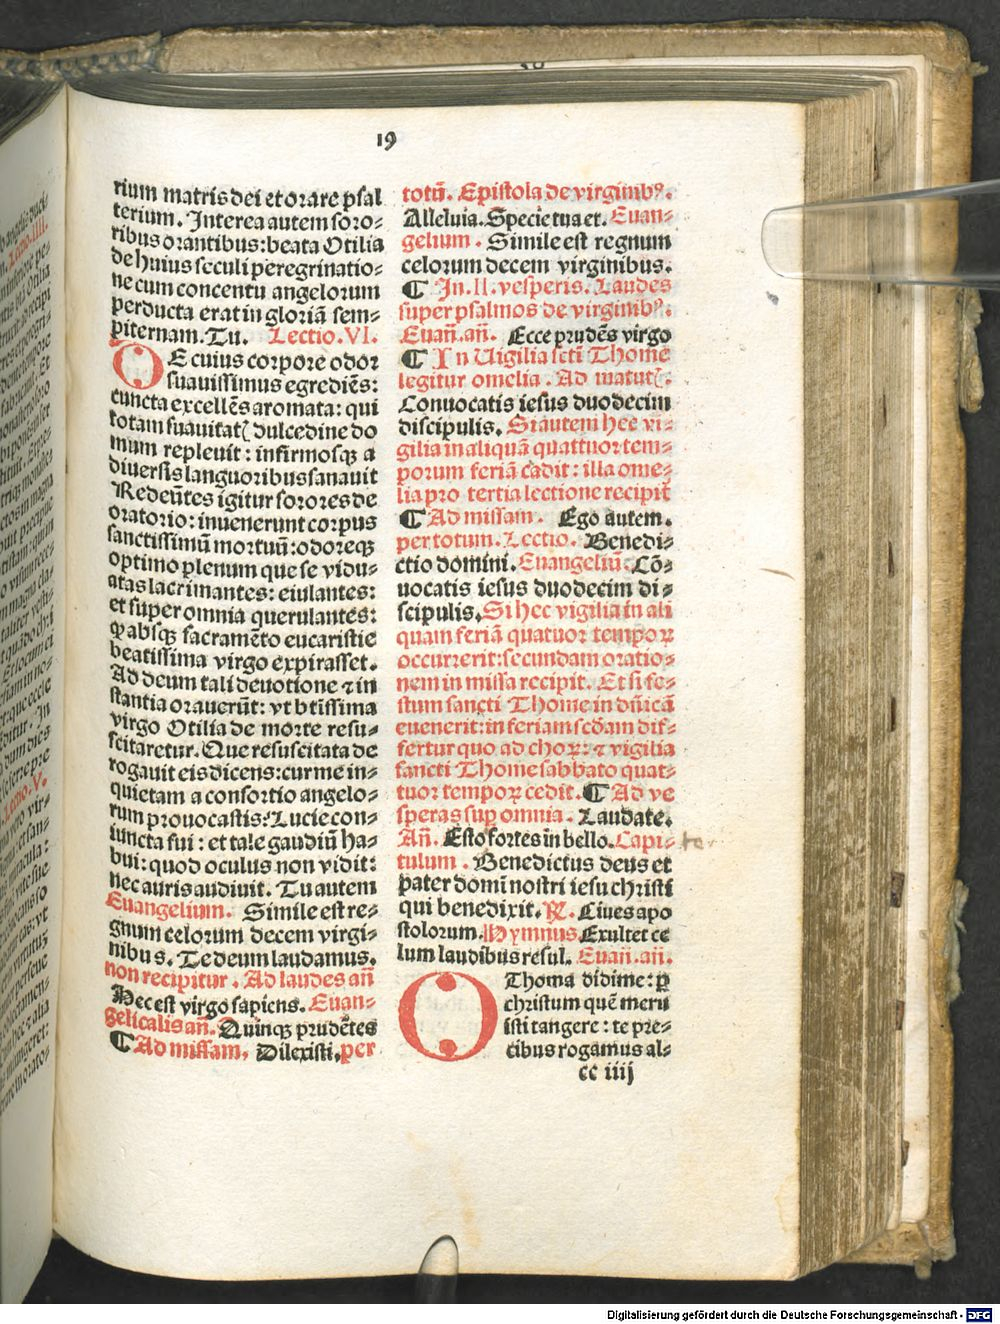 19
rium matris dei et orare psal
terium. Interea autem soro⸗
ribus orantibus: beata Otilia
de huius seculi peregrinatio⸗
ne cum concentu angelorum
perducta erat in gloriā sem⸗
piternam. Tu. Lectio. VI.
DE cuius corpore odor
suauissimus egrediēs:
cuncta excellēs aromata: qui
totam suauitatꝭ dulcedine do
mum repleuit: infirmosqꝫ a
diuersis languoribus sanauit
Redeūtes igitur sorores de
oratorio: inuenerunt corpus
sanctissimū mortuū: odoreqꝫ
optimo plenum que se vidu⸗
atas lacrimantes: eiulantes:
et super omnia querulantes:
ꝙ absqꝫ sacramēto eucaristie
beatissima virgo expirasset.
Ad deum tali deuotione ⁊ in
stantia orauerūt: vt btīssima
virgo Otilia de morte resu⸗
scitaretur. Que resuscitata de
rogauit eis dicens: cur me in⸗
quietam a consortio angelo⸗
rum prouocastis: Lucie con⸗
iuncta fui: et tale gaudiū ha⸗
bui: quod oculus non vidit:
nec auris audiuit. Tu autem
Euangelium. Simile est re⸗
gnum celorum decem virgi⸗
nibus. Te deum laudamus.
non recipitur. Ad laudes añ
Hec est virgo sapiens. Euan⸗
gelicalis añ. Quinqꝫ prudētes
¶ Ad missam. Dilexisti. per
totū. Epistola de virginibꝰ.
Alleluia. Specie tua et. Euan⸗
gelium. Simile est regnum
celorum decem virginibus.
¶ In. II. vesperis. Laudes
super psalmos de virginibꝰ.
Euañ. añ. Ecce prudēs virgo
¶ In Uigilia scti Thome
legitur omelia. Ad matutꝭ.
Conuocatis iesus duodecim
discipulis. Si autem hec vi⸗
gilia in aliquā quattuor tem⸗
porum feriā cadit: illa ome⸗
lia pro tertia lectione recipit̄
¶ Ad missam. Ego autem.
per totum. Lectio. Benedi⸗
ctio domini. Euangeliū: Cō⸗
uocatis iesus duodecim di⸗
scipulis. Si hec vigilia in ali
quam feriā quatuor tempoꝝ
occurrerit: secundam oratio⸗
nem in missa recipit. Et si fe⸗
stum sancti Thome in dn̄icā
euenerit: in feriam scd̄am dif⸗
fertur quo ad choꝝ: ⁊ vigilia
sancti Thome sabbato quat⸗
tuor tempoꝝ cedit. ¶ Ad ve
speras sup omnia. Laudate.
Añ. Esto fortes in bello. Capi⸗
tulum. Benedictus deus et
pater domī nostri iesu christi
qui benedixit. ℟. Ciues apo
stolorum. Hymnus. Exultet ce
lum laudibus resul. Euañ. añ.
O Thoma didime: ꝑ
christum quē meru
isti tangere: te pre⸗
cibus rogamus al⸗
cc iiij
Digitalisierung gefördert durch die Deutsche Forschungsgemeinschaft - DFG